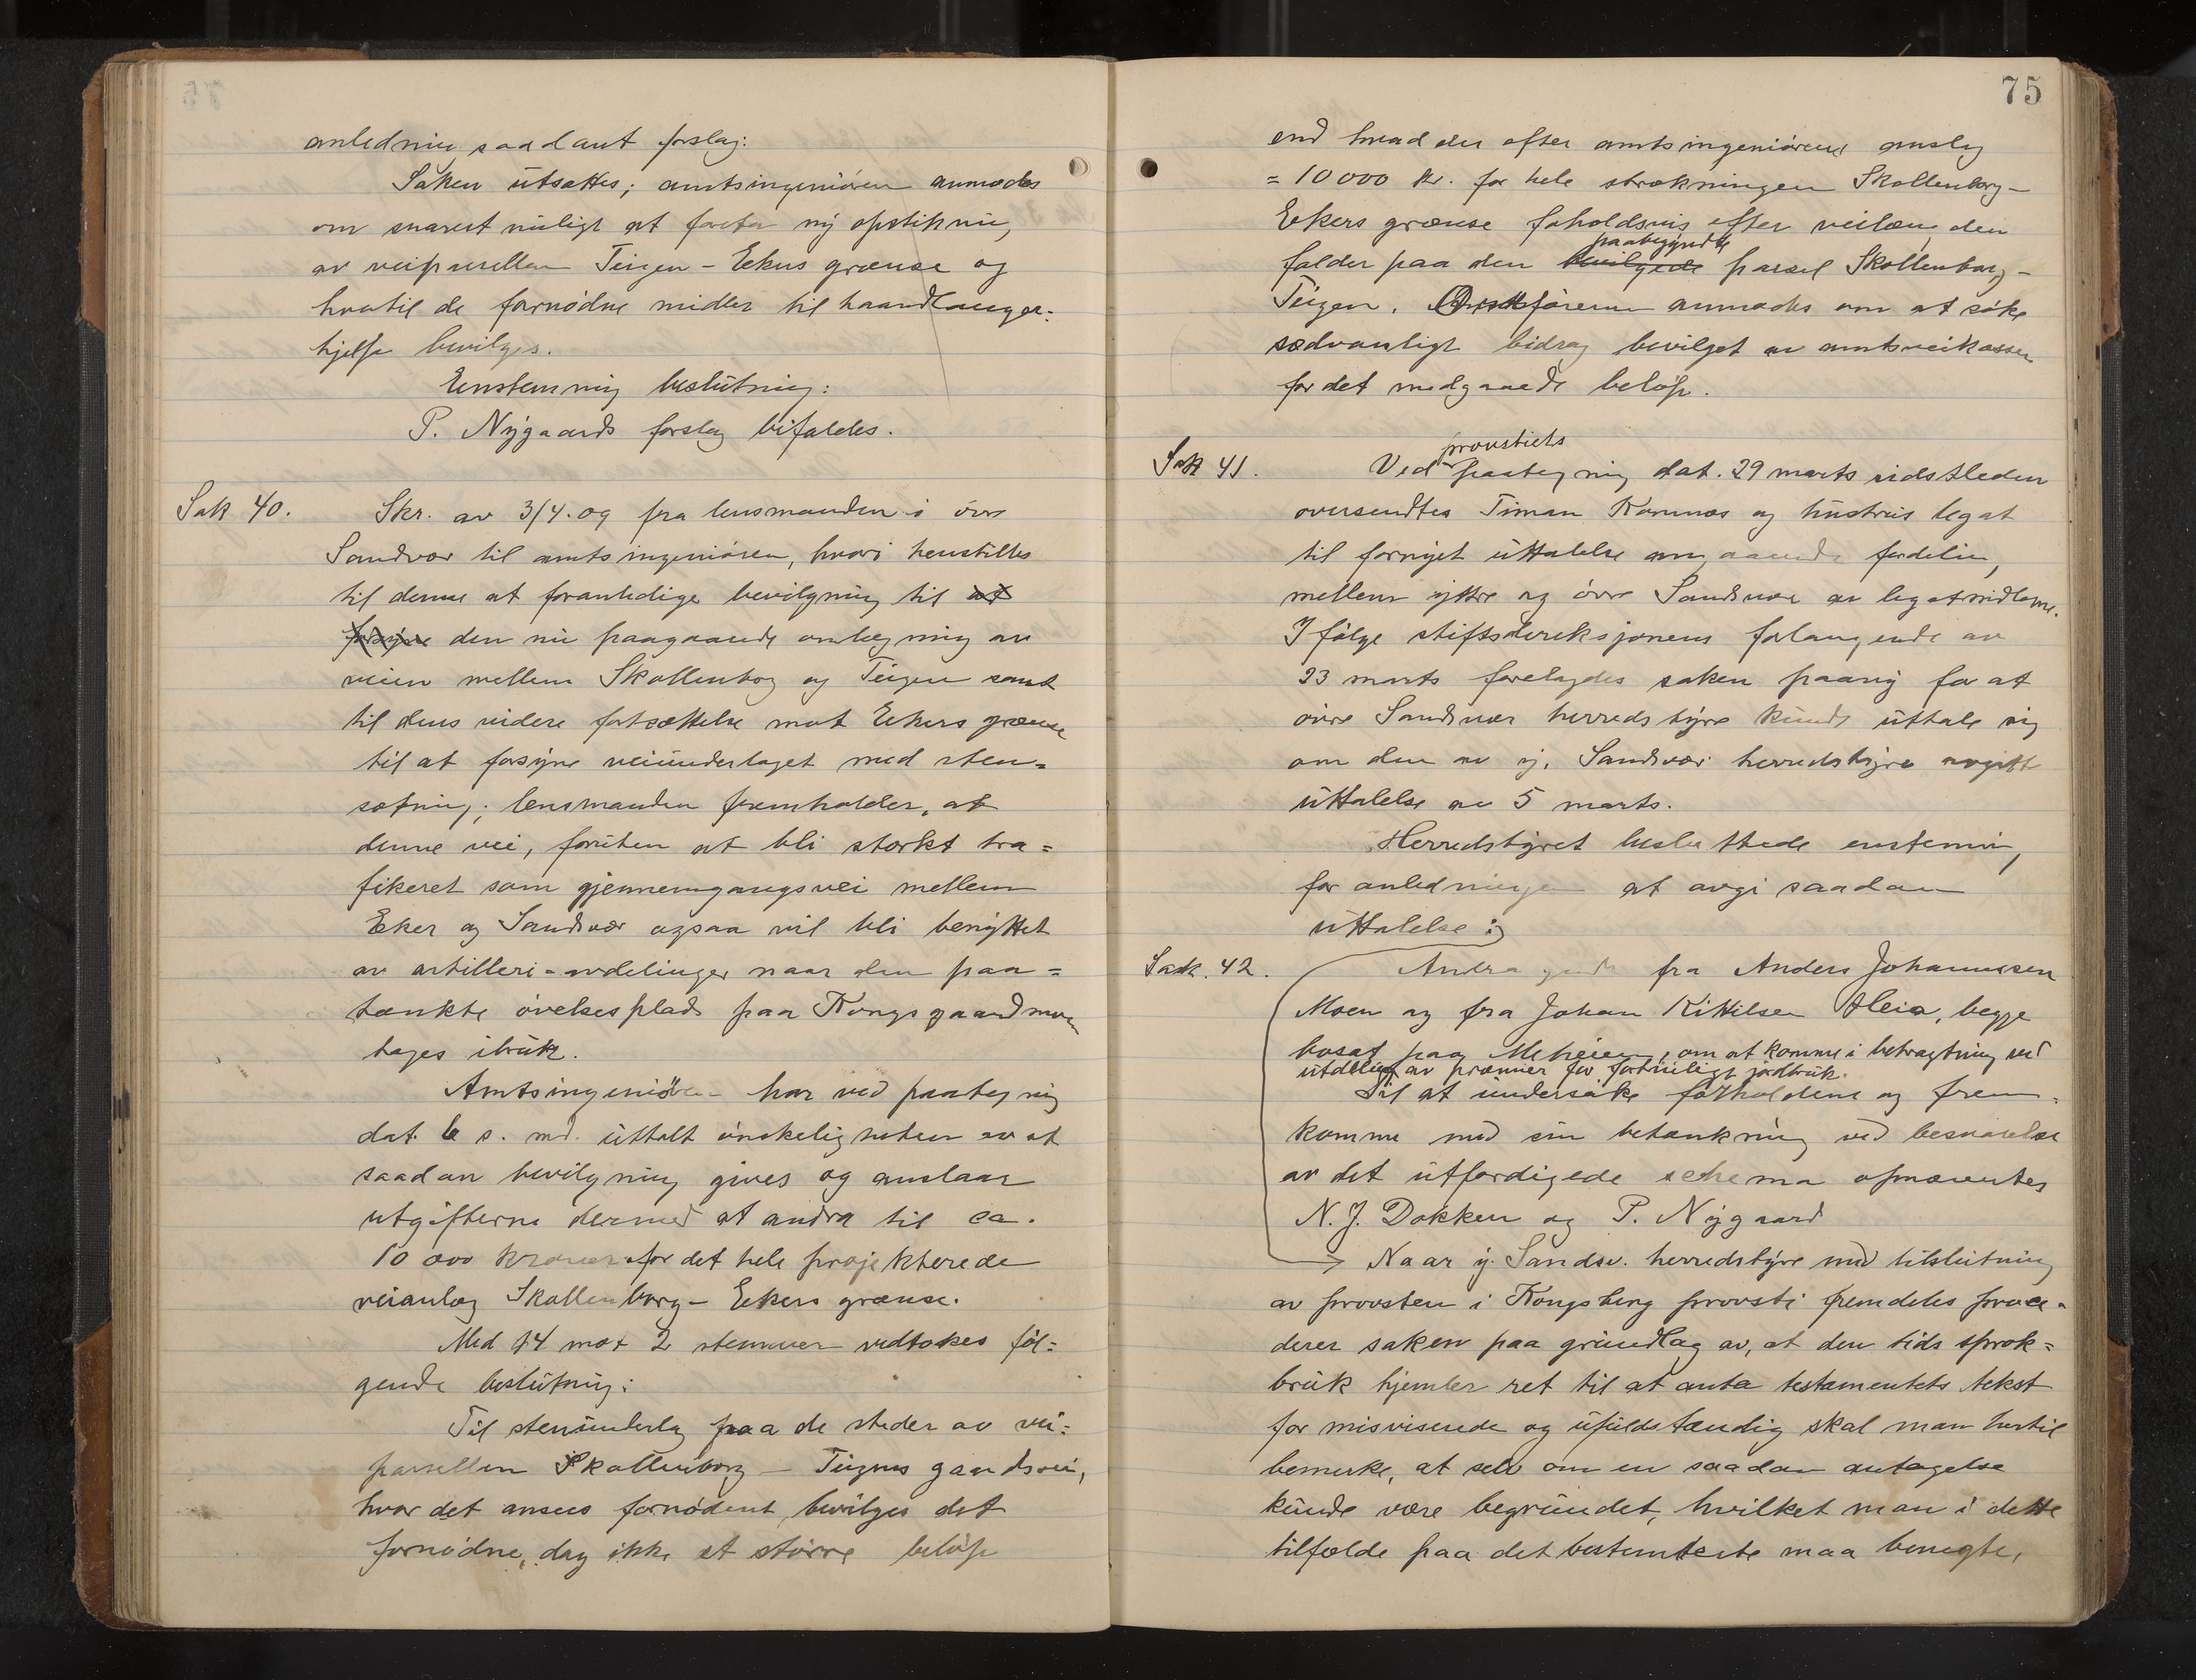 anledning saadant forslag:
Saken utsættes; amtsingeniøren anmodes
om snarest muligt at foreta ny opstikning
av veiparsellen Teigen - Ekers grænse og
hvortil de fornødne midler til haandlanger-
hjelp bevilges.
Enstemmig beslutning:
P. Nygaards forslag bifaldes.
Sak 40.
Skr. av 3/4.09 fra lensmanden i øvre
Sandsvær til amtsingeniøren, hvori henstilles
til denne at foranledige bevilgning til at
forsyne den nu paagaaende omlægning av
veien mellem Skollenborg og Teigen samt
til dens videre fortsættelse mot Ekers grænse
til at forsyne veiunderlaget med sten=
sætning; lensmanden fremholder, at
denne vei, foruten at bli stærkt tra=
fikeret som gjennemgangsvei mellem
Eker og Sandsvær ogsaa vil bli benyttet
av artilleri-avdelinger naar den paa=
tænkte øvelsesplads paa Kongsgaardmoen
tages ibruk.
Amtsingeniøren har ved paategning
dat. 6 s. md. uttalt ønskeligheten av at
saadan bevilgning gives og anslaar
utgifterne dermed at andra til ca.
10 000 kroner for det hele projekterede
veianlæg Skollenborg - Ekers grænse.
Med 14 mot 2 stemmer vedtokes føl=
gende beslutning:
Til stenunderlag paa de steder av vei=
parsellen Skollenborg - Teigens gaardsvei,
hvor det ansees fornødent, bevilges det
fornødne, dog ikke et større beløp
75
end hvad der efter amtsingeniørens anslag
= 10000 kr. for hele strækningen Skollenborg -
Ekers grænse foholdsvis efter veilængden
paabegyndte
falder paa den bevilgede parsel Skollenborg -
Teigen. Ordføreren anmodes om at søke
sædvanligt bidrag bevilget av amtsveikassen
for det medgaaede beløp.
Sak 41.
provstiets
Ved paategning dat. 29 marts sidstleden
oversendtes Timan Komnæs og hustrus legat
til fornyet uttalelse angaaende fordeling
mellem ytre og øvre Sandsvær av legatmidlerne.
Ifølge stiftsdireksjonens forlangende av
23 marts forelagdes saken paany for at
øvre Sandsvær herredstyre kunde uttale sig
om den av y. Sandsvær herredstyre avgitt
uttalelse av 5 marts.
Herredstyret besluttede enstemmig
for anledningen at avgi saadan
uttalelse:
Sak. 42.
Andragende fra Anders Johannessen
Moen og fra Johan Kittilsen Heia, begge
bosat paa Meheien, om at komme i betragtning ved
utdeling av præmier for fortrinligt jordbruk.
Til at undersøke forholdene og frem=
komme med sin betænkning ved besvarelse
av det utfærdigede schema opnævntes
N. J. Dokken og P. Nygaard
Naar y. Sandsv. herredstyre med tilslutning
av provsten i Kongsberg provsti fremdeles proce=
derer saken paa grundlag av, at den tids sprok=
bruk hjemler ret til at anta testamentets tekst
for misvisende og ufuldstændig skal man hertil
bemerke, at selv om en saadan antagelse
kunde være begrundet, hvilket man i dette
tilfælde paa det bestemteste maa benegte,